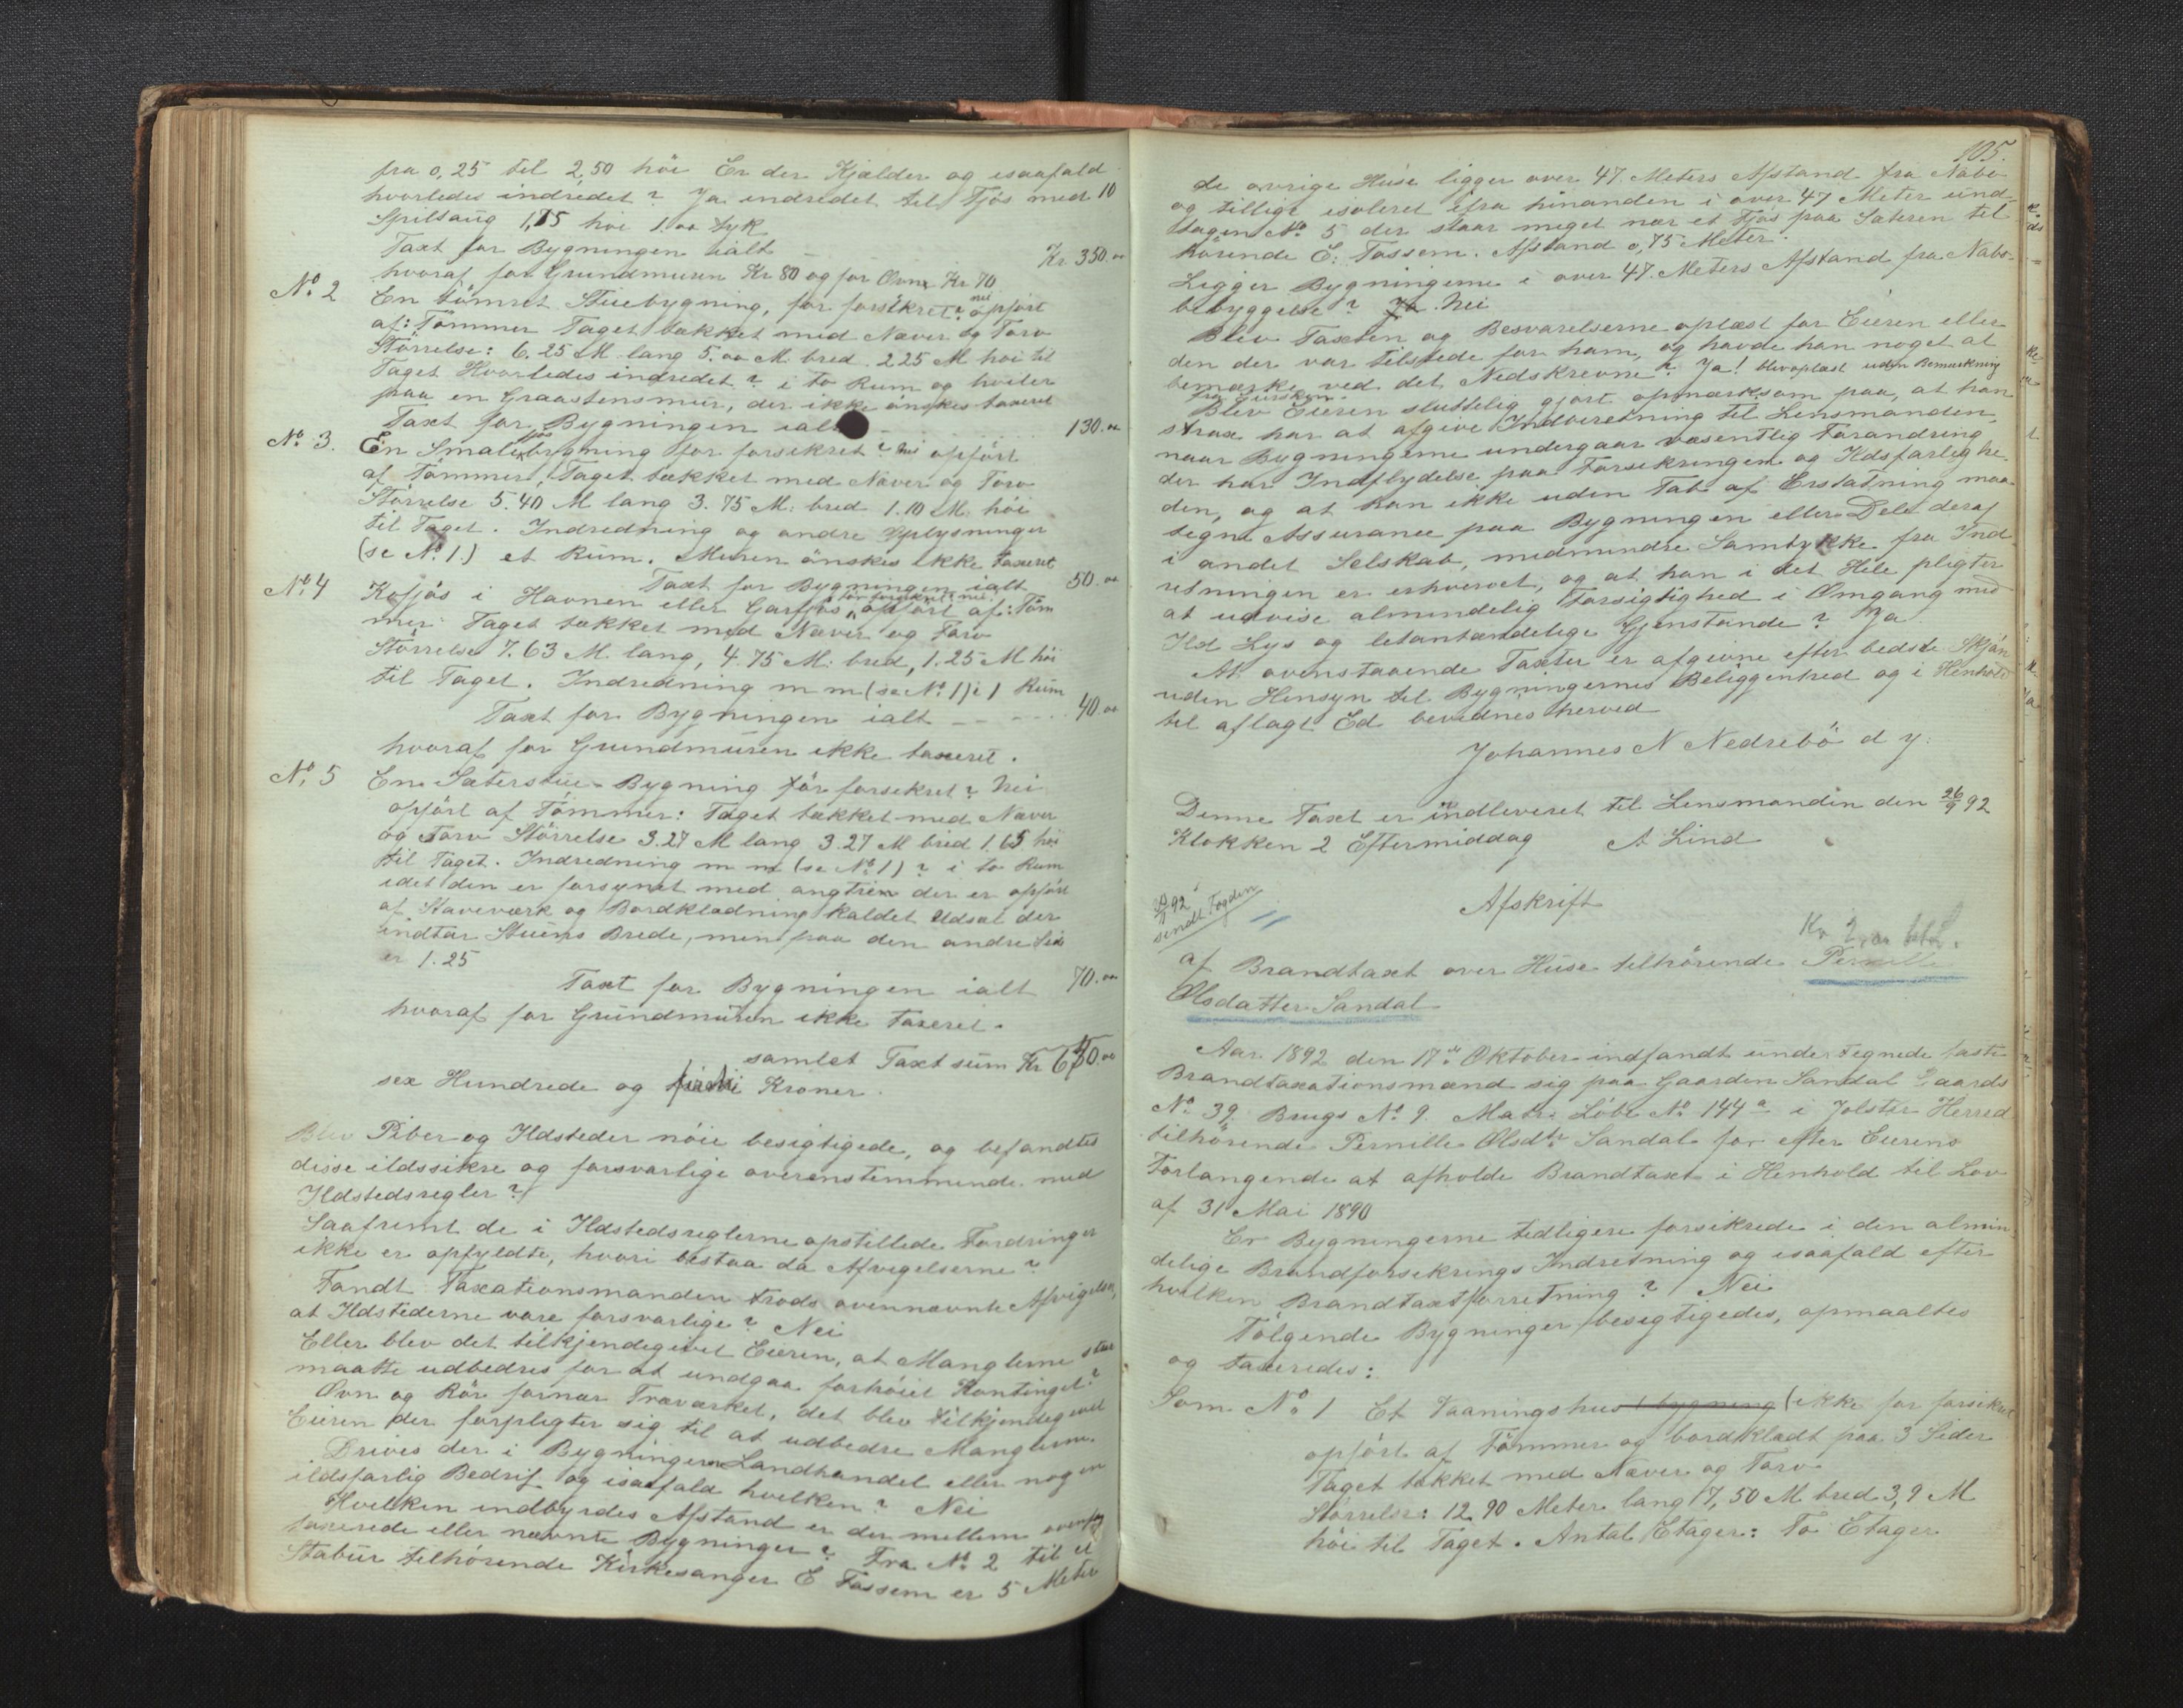 fra 0,25 til 2,50 höi Er der Kjælder og isaafald
hvorledes indredet? Ja indredet til Fjös med 10
Spiltaug 1,75 höi 1.00 tyk
Taxt for Bygningen ialt Kr 350.00
hvoraf for Grundmuren Kr 80 og for Ovne Kr 70
No. 2 En tömret Stuebygning, för forsikret? nei opfört
af: Tömmer Taget tækket med Næver og Torv
Störrelse: 6.25 M. lang 5.00 M. bred 2.25 M höi til
Taget Hvorledes indredet? i to Rum og hviler
paa en Graastensmur, der ikke önskes taxeret
Taxt for Bygningen ialt 130.00
No. 3. En Smalefjösbygning för forsekret? nei opfört
af Tömmer, Taget tækket med Næver og Torv
Störrelse 5.40 M lang 3.75 M. bred 1.10 M. höi
til Taget. Indredning og andre Oplysninger
(se No. 1.) et Rum. Muren önskes ikke taxeret
Taxt for Bygningen ialt 50.00
No. 4 Kofjös i Havnen eller Garfjös för forsikret nei. opfört af: Töm
mer Taget tækket med Næver og Torv
Störrelse 7.63 M. lang, 4.75 M. bred, 1.25 M höi
til Taget. Indredning m m (se No. 1) i 1 Rum
Taxt for Bygningen ialt 40.00
hvoraf for Grundmuren ikke taxeret.
No. 5 En Sæterstue-Bygning för forsekret? Nei
opfört af Tömmer: Taget tækket med Næver
og Torv Störrelse 3.27 M lang 3.27 M bred 1.65 höi
til Taget. Indredning m m (se No. 1)? i to Rum
idet den er forsynet med der er opfört
af Staveværk og Bordklædning kaldet Udsæl der
indtar Stuens Brede, men paa den andre Side
er 1.25
Taxt for Bygningen ialt 70.00
hvoraf for Grundmuren ikke Taxeret.
samlet Taxt sum Kr 640.00
sex Hundrede og firti Kroner.
Blev Piber og Ildsteder nöie besigtigede, og befandtes
disse ildssikre og forsvarlige overenstemmende med
Ildstedsregler?
Saafremt de i Ildstedsreglerne opstillede Fordringer
ikke er opfyldte, hvori bestaa da Afvigelserne?
Fandt Taxationsmanden trods ovennævnte Afvigelser,
at Ildstederne vare forsvarlige? Nei
Eller blev det tilkjendegivet Eieren, at Manglerne
maatte udbedres for at undgaa forhöiet Kontingent?
Ovn og Rör fornær Træværket, det blev tilkjendegivet
Eieren der forpligter sig til at udbedre Manglerne.
Drives der i Bygningen Landhandel eller nogen
ildsfarlig Bedrif og isaafald hvilken? Nei
Hvilken indbyrdes Afstand er der mellem
taxerede eller nævnte Bygninger? Fra No. 2 til et
Stabur tilhörende Kirkesanger E Fossem er 5 Meter
105.
de övrige Huse ligger over 47 Meters Afstand fra Nabo
og tillige isoleret ifra hinanden i over 47 Meter und-
tagen No. 5 der staar meget nær et Fjös paa Sæteren til
hörende E. Fossem. Afstand 0,75 Meter.
Ligger Bygningerne i over 47 Meters Afstand fra Nabo-
bebyggelse? Ja Nei
Blev Taxten og Besvarelserne oplæst for Eieren eller
den der var tilstede for ham, og havde han noget at
bemærke ved det Nedskrevne? Ja! blev oplæst uden Bemærkning
fra Eiersken.
Blev Eieren sluttelig gjort opmærksom paa, at han
strax har at afgive Indberetning til Lensmanden,
naar Bygningerne undergaar væsentlig Forandring
der har Indflydelse paa Forsikringen og Ildsfarlighe-
den, og at han ikke uden Tab af Erstatning maa
tegne Assurance paa Bygningen eller Dele deraf
i andet Selskab, medmindre Samtykke fra Ind-
retningen er erhvervet, og at han i det Hele pligter
at udvise almindelig Forsigtighed i Omgang med
Ild Lys og letantændelige Gjenstande? Ja
At ovenstaaende Taxter er afgivne efter bedste Skjön
uden Hensyn til Bygningernes Beliggenhed og i Henhold
til aflagt Ed bevidnes herved
Johannes N Nedrebö d y.
Denne Taxt er indleveret til Lensmanden den 26/9 92
Klokken 2 Eftermiddag A Lind
92
sendt Fogden
Afskrift
Kr 2 betl.
af Brandtaxt over Huse tilhörende Pernille
Olsdatter Sandal
Aar 1892 den 17de Oktober indfandt undertegnede faste
Brandtaxationsmænd sig paa Gaarden Sandal Gaards
No. 39 Brugs No. 9. Matr. Löbe No. 144a i Jölster Herred
tilhörende Pernille Olsdtr Sandal for efter Eierens
Forlangende at afholde Brandtaxt i Henhold til Lov
af 31 Mai 1890
Er Bygningerne tidligere forsikrede i den almin
delige Brandforsikrings Indretning og isaafald efter
hvilken Brandtaxtforretning? Nei
Fölgende Bygninger besigtigedes, opmaaltes
og taxeredes:
Som No 1 Et Vaaningshus bygning (ikke för forsikret
opfört af Tömmer og bordklædt paa 3 Sider
Taget tækket med Næver og Torv
Störrelse: 12,90 Meter lang 7,50 M bred 3,9 M
höi til Taget. Antal Etager: To Etager